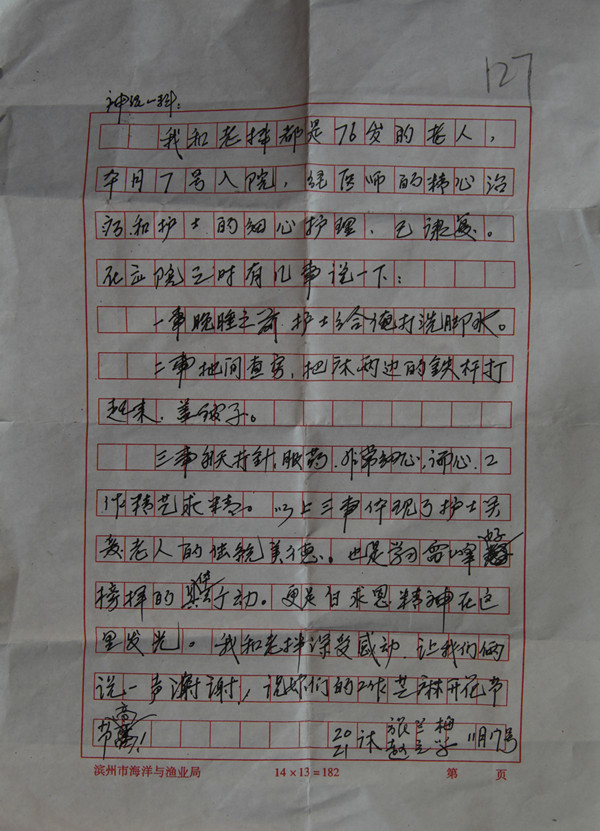 127
神经一科：
我和老拌都是76岁的老人，
本月7号入院，经医师的精心治
疗和护士的细心护理，已康复。
在出院之时有几事说一下：
一事晚睡之前，护士给俺打洗脚水。
二事地间查房，把床两边的铁杆打
起来，盖被子。
三事每天打针，服药，非常细心，耐心，工
作精艺求精。以上三事体现了护士关
爱老人的传统美德。也是学习雷锋好
榜样的具体行动。更是白求恩精神在这
里发光。我和老拌深受感动，让我们俩
说一声谢谢！说你们的工作芝麻开花节
节高！
20 21 床 张兰柏 11月17号
滨州市海洋与渔业局 14×13＝182 第 页